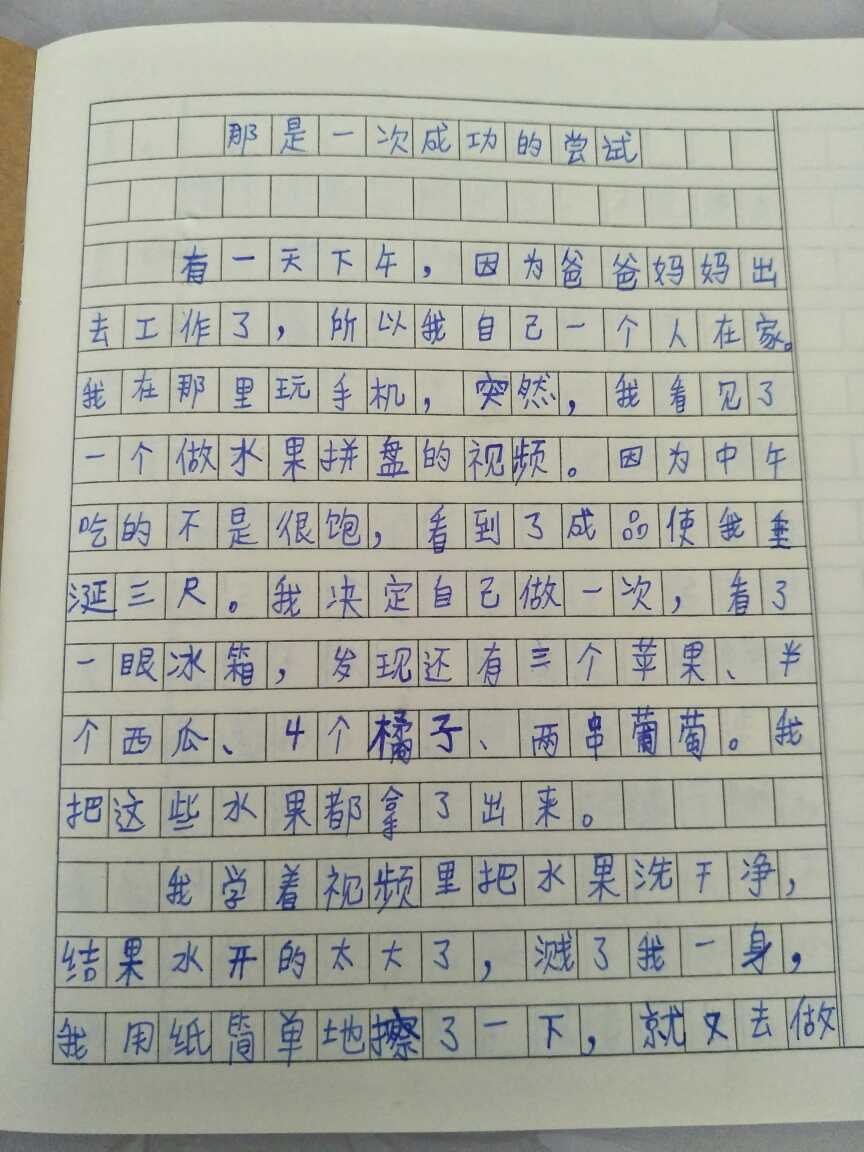 那是一次成功的尝试
有一天下午，因为爸爸妈妈出
去工作了，所以我自己一个人在家。
我在那里玩手机，突然，我看见了
一个做水果拼盘的视频。因为中午
吃的不是很饱，看到了成品使我垂
涎三尺。我决定自己做一次，看了
一眼冰箱，发现还有三个苹果、半
个西瓜、4个橘子、两串葡萄。我
把这些水果都拿了出来。
我学着视频里把水果洗干净，
结果水开的太大了，溅了我一身，
我用纸简单地擦了一下，就又去做